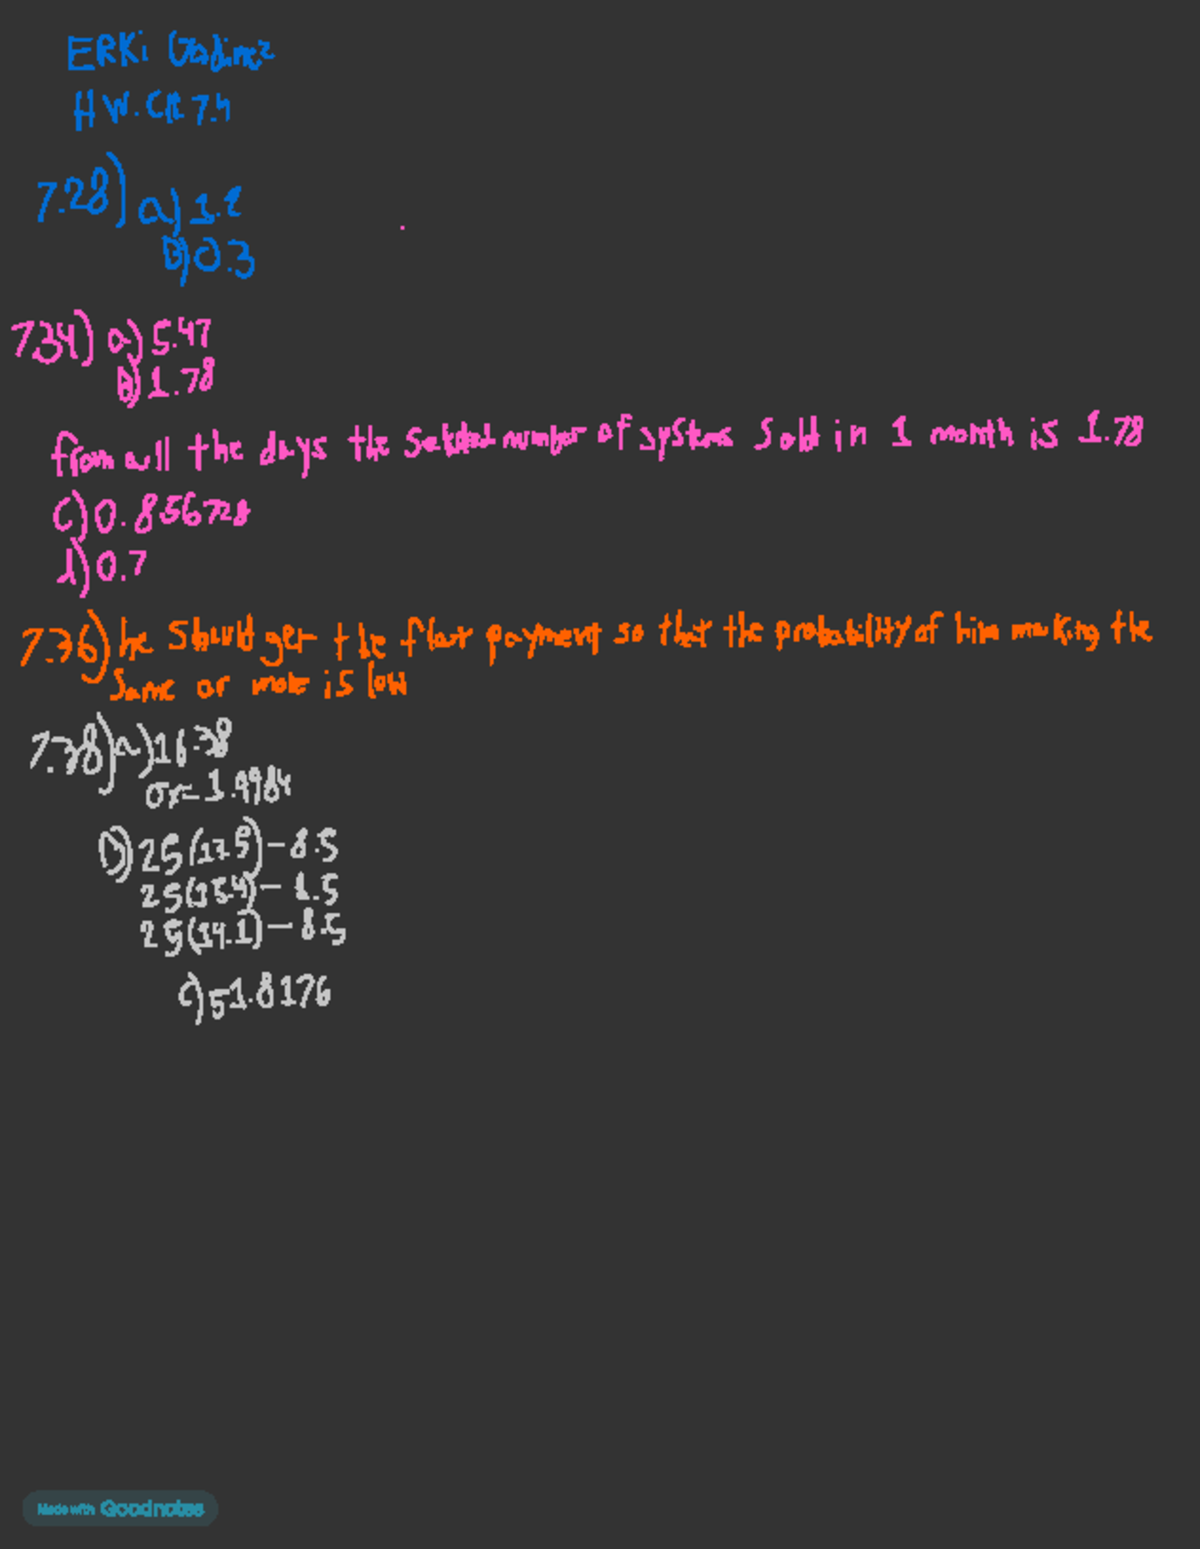 ERKi
HW.CH 7.4
7.28) a) 1.2
B) 0.3
7.34) a) 5.47
B) 1.78
from all the days the number of systems sold in 1 month is 1.78
c) 0.856728
d) 0.7
7.36) he should get the flat payment so that the probability of him making the
same or more is low
7.38) a) 16.38
σx= 1.9984
b) 25(17.5)-8.5
25(15.4)-8.5
25(14.1)-8.5
c) 51.8176
Made with Goodnotes